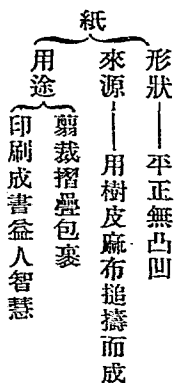 紙
形狀——平正無凸凹
來源——用樹皮麻布搥擣而成
用途
翦裁摺疊包裹
印刷成書益人智慧